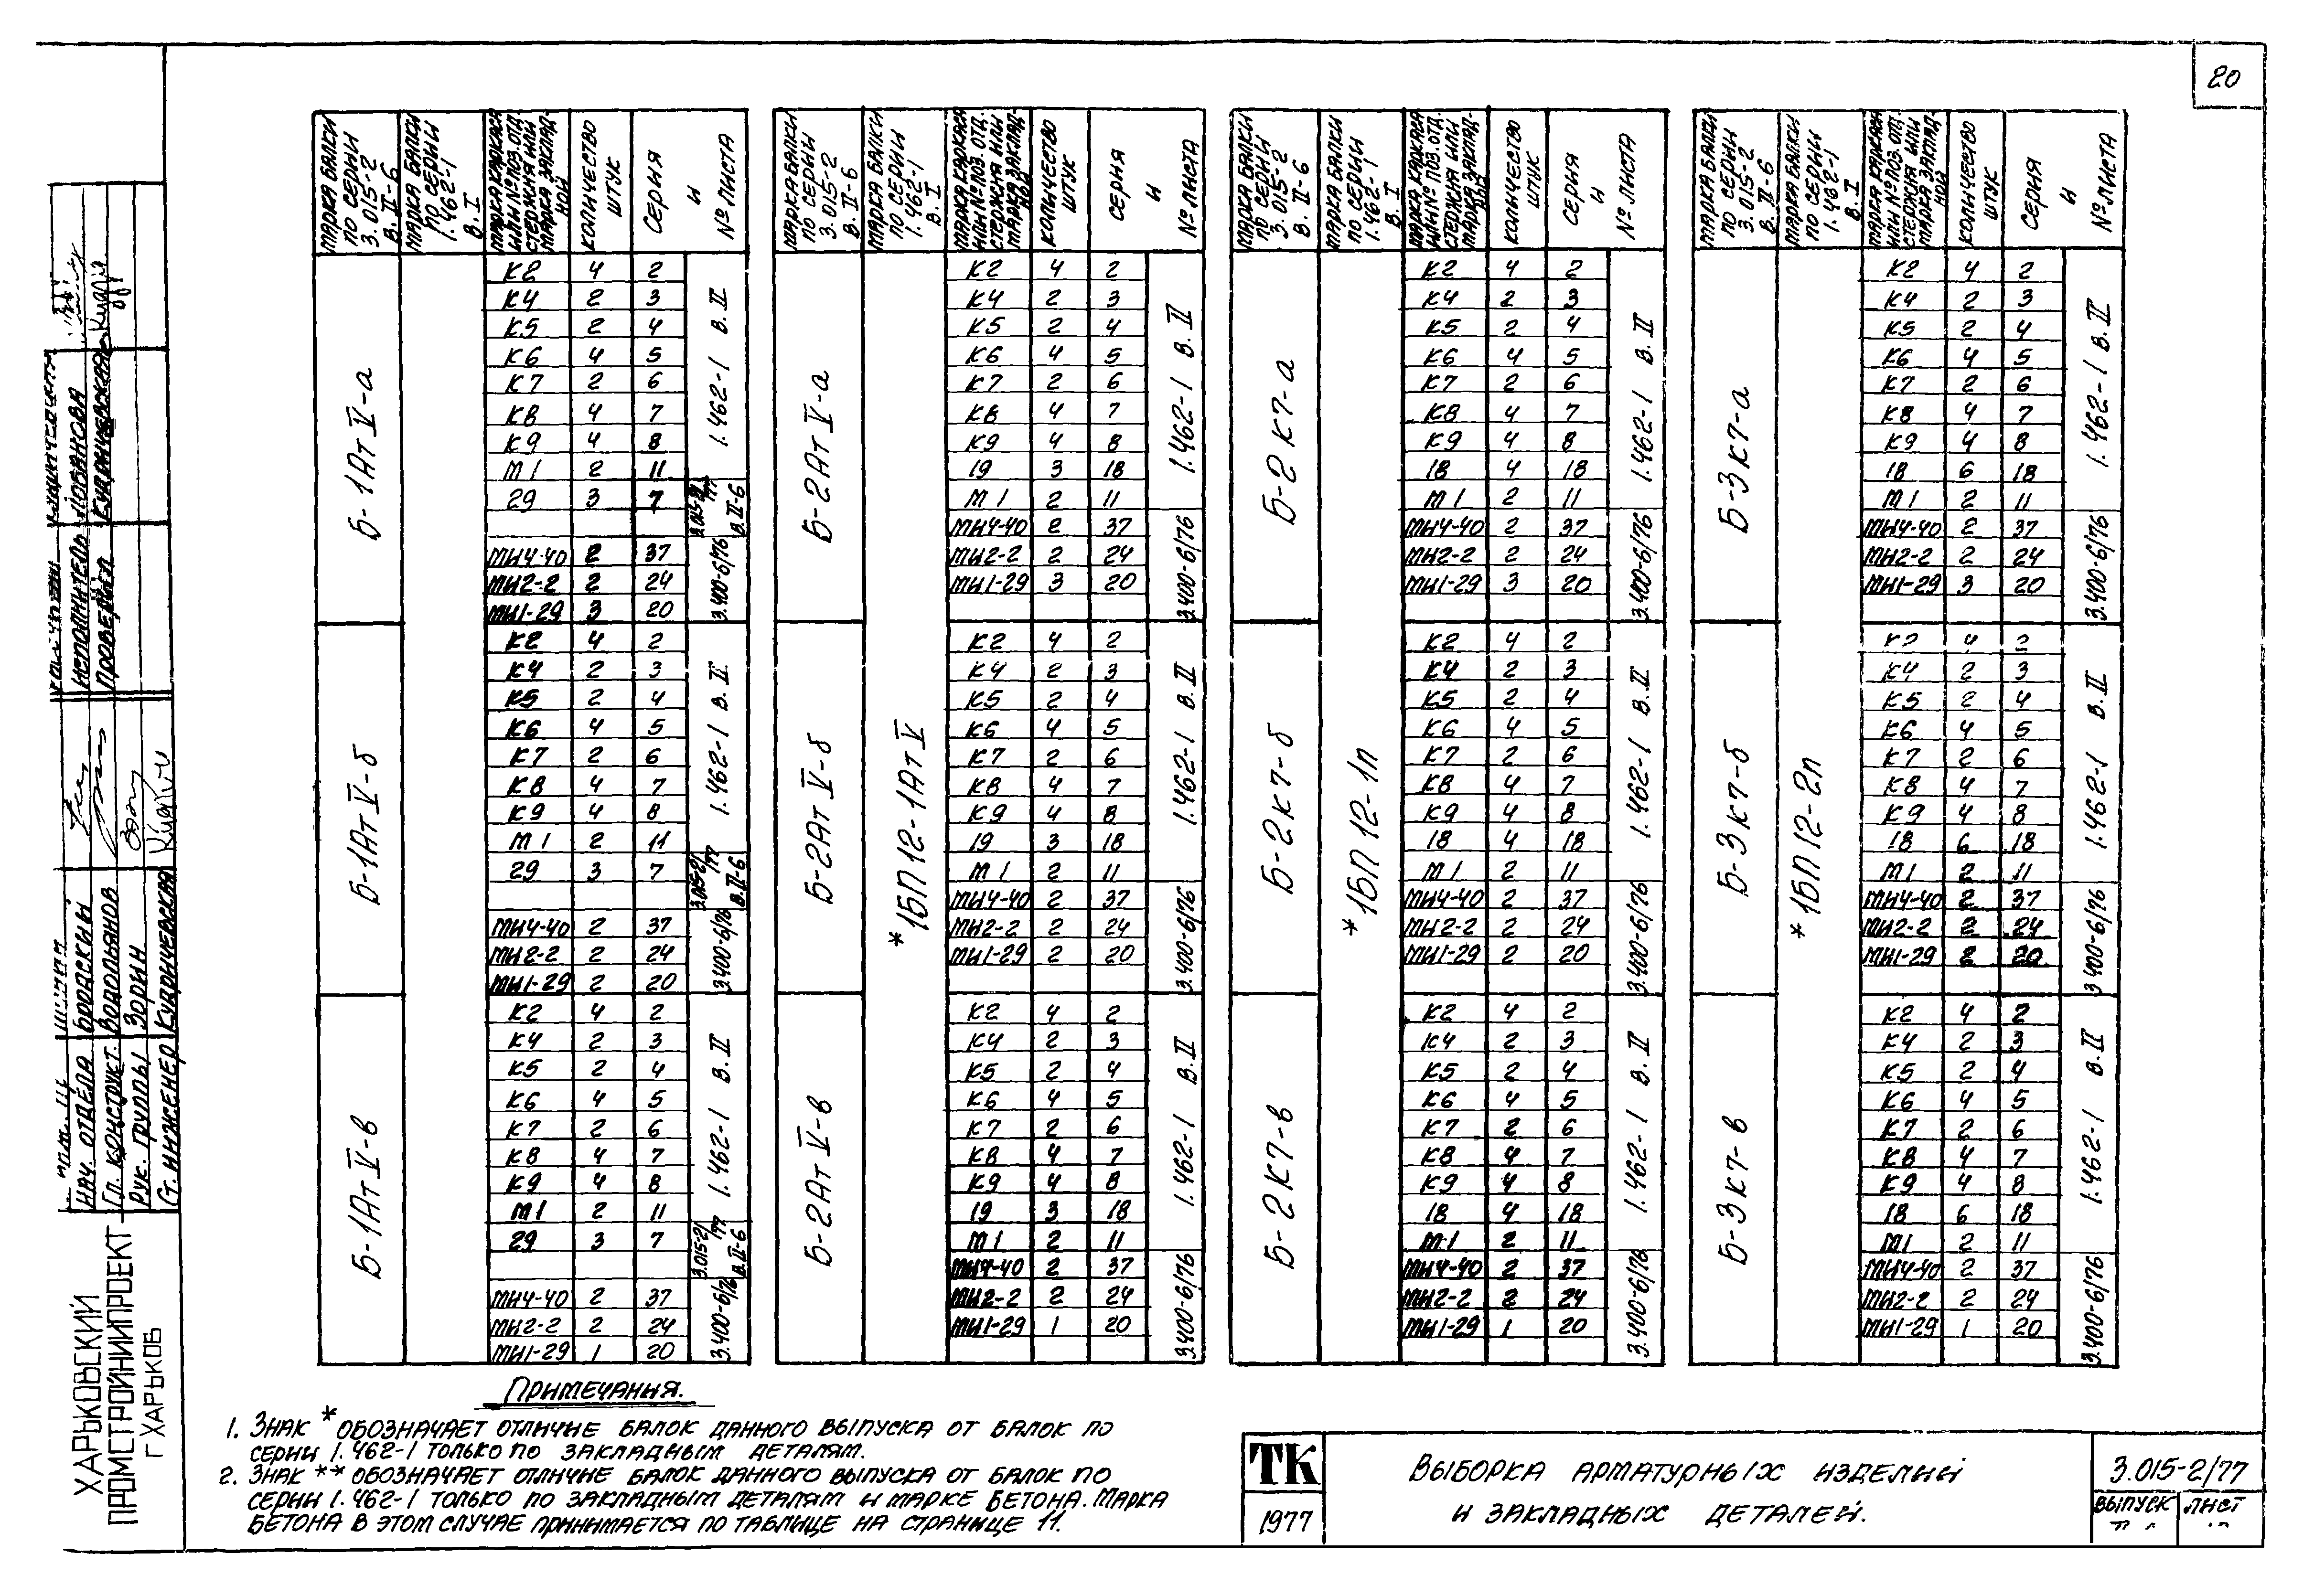 20
МАРКА БАЛКИ ПО СЕРИИ 3.015-2 В. II-6 | МАРКА БАЛКИ ПО СЕРИИ 1.462-1 В. I | МАРКА КАРКАСА ИЛИ № ПОЗ. ОТД. СТЕРЖНЯ ИЛИ МАРКА ЗАКЛАДНОЙ | КОЛИЧЕСТВО ШТУК | СЕРИЯ И № ЛИСТА
Б-1АтV-а
К2 4 2
К4 2 3
К5 2 4
К6 4 5
К7 2 6
К8 4 7
К9 4 8
М1 2 11
1.462-1 В. II
29 3 7
3.015-2/77 В. II-6
МН4-40 2 37
МН2-2 2 24
МН1-29 3 20
3.400-6/76
Б-1АтV-б
К2 4 2
К4 2 3
К5 2 4
К6 4 5
К7 2 6
К8 4 7
К9 4 8
М1 2 11
1.462-1 В. II
29 3 7
3.015-2/77 В. II-6
МН4-40 2 37
МН2-2 2 24
МН1-29 2 20
3.400-6/76
Б-1АтV-в
К2 4 2
К4 2 3
К5 2 4
К6 4 5
К7 2 6
К8 4 7
К9 4 8
М1 2 11
1.462-1 В. II
29 3 7
3.015-2/77 В. II-6
МН4-40 2 37
МН2-2 2 24
МН1-29 1 20
3.400-6/76
МАРКА БАЛКИ ПО СЕРИИ 3.015-2 В. II-6 | МАРКА БАЛКИ ПО СЕРИИ 1.462-1 В. I | МАРКА КАРКАСА ИЛИ № ПОЗ. ОТД. СТЕРЖНЯ ИЛИ МАРКА ЗАКЛАДНОЙ | КОЛИЧЕСТВО ШТУК | СЕРИЯ И № ЛИСТА
*1БП12-1АтV
Б-2АтV-а
К2 4 2
К4 2 3
К5 2 4
К6 4 5
К7 2 6
К8 4 7
К9 4 8
19 3 18
М1 2 11
1.462-1 В. II
МН4-40 2 37
МН2-2 2 24
МН1-29 3 20
3.400-6/76
Б-2АтV-б
К2 4 2
К4 2 3
К5 2 4
К6 4 5
К7 2 6
К8 4 7
К9 4 8
19 3 18
М1 2 11
1.462-1 В. II
МН4-40 2 37
МН2-2 2 24
МН1-29 2 20
3.400-6/76
Б-2АтV-в
К2 4 2
К4 2 3
К5 2 4
К6 4 5
К7 2 6
К8 4 7
К9 4 8
19 3 18
М1 2 11
1.462-1 В. II
МН4-40 2 37
МН2-2 2 24
МН1-29 1 20
3.400-6/76
МАРКА БАЛКИ ПО СЕРИИ 3.015-2 В. II-6 | МАРКА БАЛКИ ПО СЕРИИ 1.462-1 В. I | МАРКА КАРКАСА ИЛИ № ПОЗ. ОТД. СТЕРЖНЯ ИЛИ МАРКА ЗАКЛАДНОЙ | КОЛИЧЕСТВО ШТУК | СЕРИЯ И № ЛИСТА
*1БП12-1п
Б-2К7-а
К2 4 2
К4 2 3
К5 2 4
К6 4 5
К7 2 6
К8 4 7
К9 4 8
18 4 18
М1 2 11
1.462-1 В. II
МН4-40 2 37
МН2-2 2 24
МН1-29 3 20
3.400-6/76
Б-2К7-б
К2 4 2
К4 2 3
К5 2 4
К6 4 5
К7 2 6
К8 4 7
К9 4 8
18 4 18
М1 2 11
1.462-1 В. II
МН4-40 2 37
МН2-2 2 24
МН1-29 2 20
3.400-6/76
Б-2К7-в
К2 4 2
К4 2 3
К5 2 4
К6 4 5
К7 2 6
К8 4 7
К9 4 8
18 4 18
М1 2 11
1.462-1 В. II
МН4-40 2 37
МН2-2 2 24
МН1-29 1 20
3.400-6/76
МАРКА БАЛКИ ПО СЕРИИ 3.015-2 В. II-6 | МАРКА БАЛКИ ПО СЕРИИ 1.462-1 В. I | МАРКА КАРКАСА ИЛИ № ПОЗ. ОТД. СТЕРЖНЯ ИЛИ МАРКА ЗАКЛАДНОЙ | КОЛИЧЕСТВО ШТУК | СЕРИЯ И № ЛИСТА
*1БП12-2п
Б-3К7-а
К2 4 2
К4 2 3
К5 2 4
К6 4 5
К7 2 6
К8 4 7
К9 4 8
18 6 18
М1 2 11
1.462-1 В. II
МН4-40 2 37
МН2-2 2 24
МН1-29 3 20
3.400-6/76
Б-3К7-б
К2 4 2
К4 2 3
К5 2 4
К6 4 5
К7 2 6
К8 4 7
К9 4 8
18 6 18
М1 2 11
1.462-1 В. II
МН4-40 2 37
МН2-2 2 24
МН1-29 2 20
3.400-6/76
Б-3К7-в
К2 4 2
К4 2 3
К5 2 4
К6 4 5
К7 2 6
К8 4 7
К9 4 8
18 6 18
М1 2 11
1.462-1 В. II
МН4-40 2 37
МН2-2 2 24
МН1-29 1 20
3.400-6/76
ПРИМЕЧАНИЯ.
1. ЗНАК * ОБОЗНАЧАЕТ ОТЛИЧИЕ БАЛОК ДАННОГО ВЫПУСКА ОТ БАЛОК ПО
СЕРИИ 1.462-1 ТОЛЬКО ПО ЗАКЛАДНЫМ ДЕТАЛЯМ.
2. ЗНАК ** ОБОЗНАЧАЕТ ОТЛИЧИЕ БАЛОК ДАННОГО ВЫПУСКА ОТ БАЛОК ПО
СЕРИИ 1.462-1 ТОЛЬКО ПО ЗАКЛАДНЫМ ДЕТАЛЯМ И МАРКЕ БЕТОНА. МАРКА
БЕТОНА В ЭТОМ СЛУЧАЕ ПРИНИМАЕТСЯ ПО ТАБЛИЦЕ НА СТРАНИЦЕ 11.
ТК
1977
ВЫБОРКА АРМАТУРНЫХ ИЗДЕЛИЙ
И ЗАКЛАДНЫХ ДЕТАЛЕЙ.
3.015-2/77
ВЫПУСК ЛИСТ
ХАРЬКОВСКИЙ
ПРОМСТРОЙНИИПРОЕКТ
Г ХАРЬКОВ
НАЧ. ОТДЕЛА БРОДСКИЙ
ГЛ. КОНСТРУКТ. ВОДОЛЬЯНОВ
РУК. ГРУППЫ ЗОРИН
СТ. ИНЖЕНЕР КУДРИЧЕВСКАЯ
ИСПОЛНИТЕЛЬ
ПРОВЕРИЛ КУДРИЧЕВСКАЯ